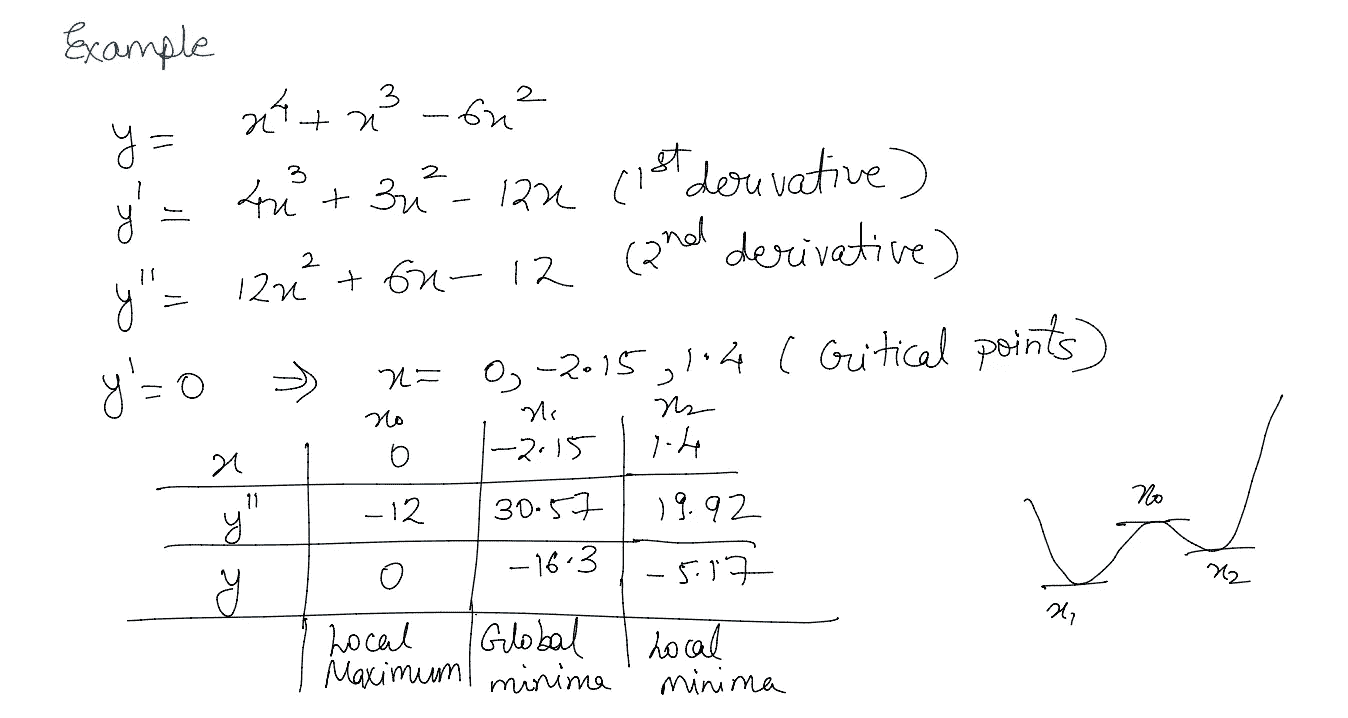 Example
y = x⁴ + x³ - 6x²
y' = 4x³ + 3x² - 12x (1st derivative)
y'' = 12x² + 6x - 12 (2nd derivative)
y' = 0 ⇒ x = 0, -2.15, 1.4 (Critical points)
x₀ x₁ x₂
x 0 -2.15 1.4
y'' -12 30.57 19.92
y 0 -16.3 -5.17
Local Maximum
Global minima
Local minima
x₀
x₁
x₂